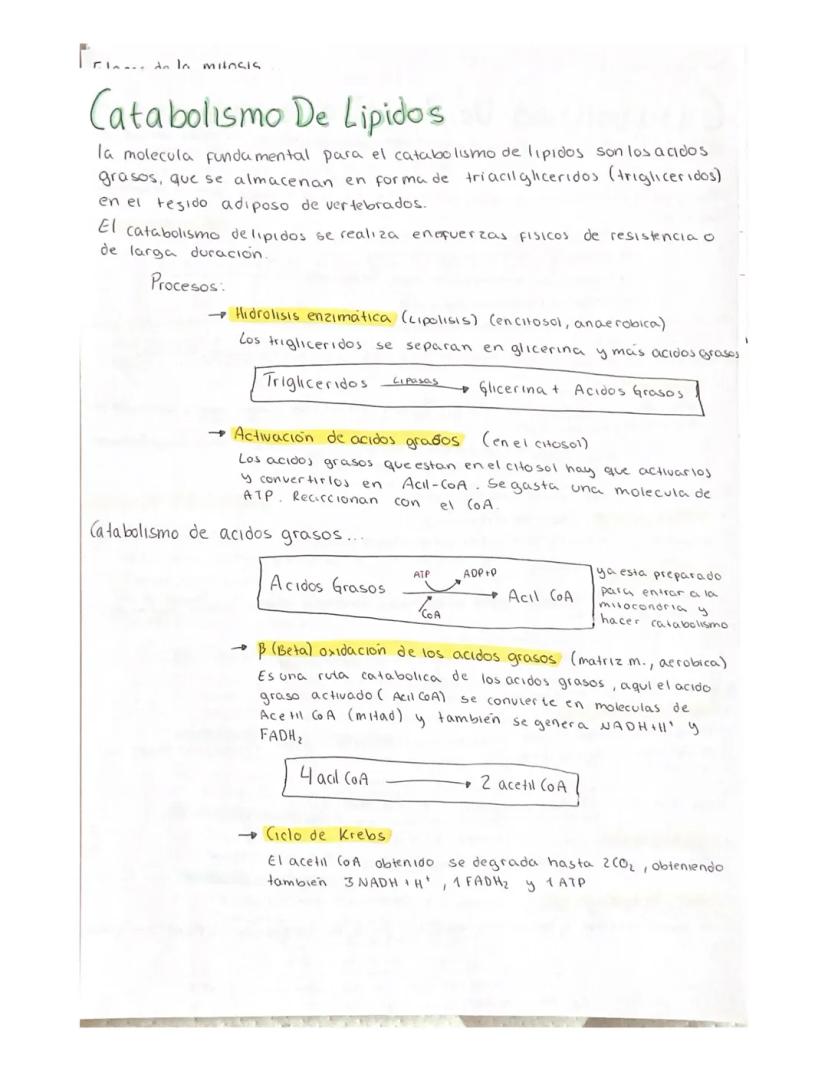 de la mitosis
Catabolismo De Lipidos
la molecula fundamental para el catabolismo de lipidos son los acidos
grasos, que se almacenan en forma de triacilgliceridos (trigliceridos)
en el tejido adiposo de vertebrados.
El catabolismo de lipidos se realiza en fisicos de resistencia o
de larga duración.
Procesos:
→ Hidrolisis enzimática (Lipolisis) (en citosol, anaerobica)
Los trigliceridos se separan en glicerina y más acidos grasos
Trigliceridos Lipasas → Glicerina + Acidos Grasos
→ Activación de acidos grasos (en el citosol)
Los acidos grasos que estan en el citosol hay que activarlos
y convertirlos en Acil-CoA. Se gasta una molecula de
ATP. Reaccionan con el CoA.
Catabolismo de acidos grasos...
Acidos Grasos ATP ADP+P CoA → Acil CoA
ya esta preparado
para entrar a la
mitocondria y
hacer catabolismo
→ β (Beta) oxidación de los acidos grasos (matriz m., aerobica)
Es una ruta catabolica de los acidos grasos, aqui el acido
graso activado (Acil CoA) se convierte en moleculas de
Acetil CoA (mitad) y también se genera NADH+H⁺ y
FADH₂
4 acil CoA → 2 acetil CoA
→ Ciclo de Krebs
El acetil CoA obtenido se degrada hasta 2CO₂, obteniendo
también 3 NADH+H⁺, 1 FADH₂ y 1 ATP